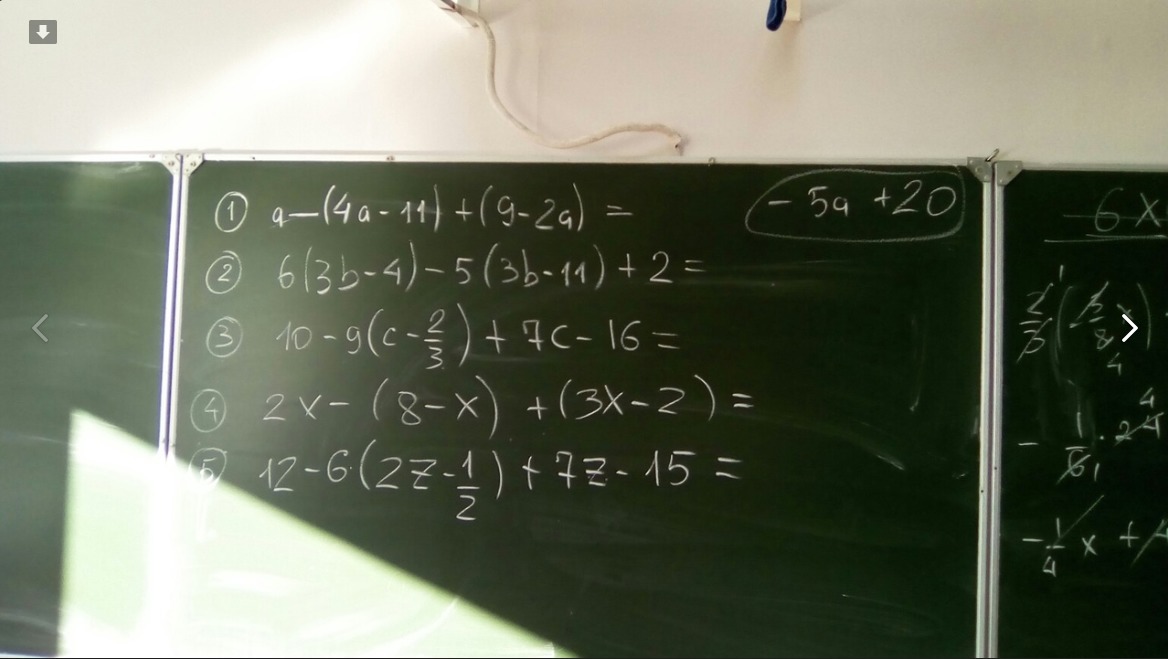 ① a-(4a-11)+(9-2a)=
-5a+20
② 6(3b-4)-5(3b-11)+2=
③ 10-9(c-2/3)+7c-16=
④ 2x-(8-x)+(3x-2)=
⑤ 12-6·(2z-1/2)+7z-15=
6x